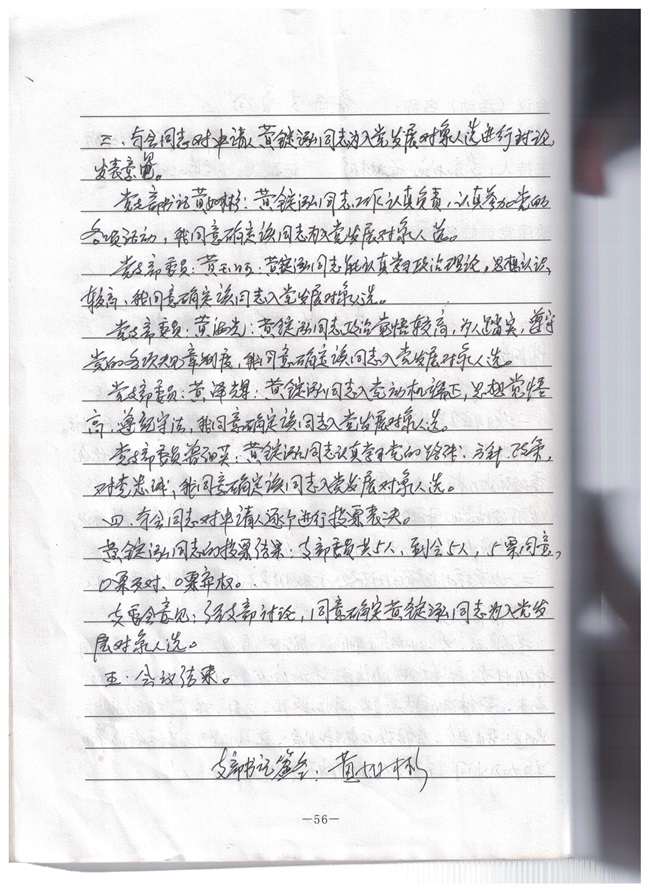 三、与会同志对申请人黄锭泓同志为入党发展对象人选进行讨论,
发表意见。
党支部书记黄如彬:黄锭泓同志工作认真负责,认真参加党的
各项活动,我同意确定该同志为入党发展对象人选。
党支部委员:黄 :黄锭泓同志能认真学习政治理论,思想认识
较高,我同意确定该同志入党发展对象人选。
党支部委员:黄海 :黄锭泓同志政治觉悟较高,为人踏实,遵守
党的各项规章制度,我同意确定该同志入党发展对象人选。
党支部委员:黄泽 :黄锭泓同志入党动机端正,思想觉悟
高,遵纪守法,我同意确定该同志入党发展对象人选。
党支部委员 :黄锭泓同志认真学习党的路线、方针、政策,
对党忠诚,我同意确定该同志入党发展对象人选。
四、与会同志对申请人逐个进行投票表决。
黄锭泓同志的投票结果:支部委员共5人,到会5人,5票同意,
0票反对、0票弃权。
支委会意见:经支部讨论,同意确定黄锭泓同志为入党发
展对象人选。
五、会议结束。
支部书记签名:黄如彬
—56—